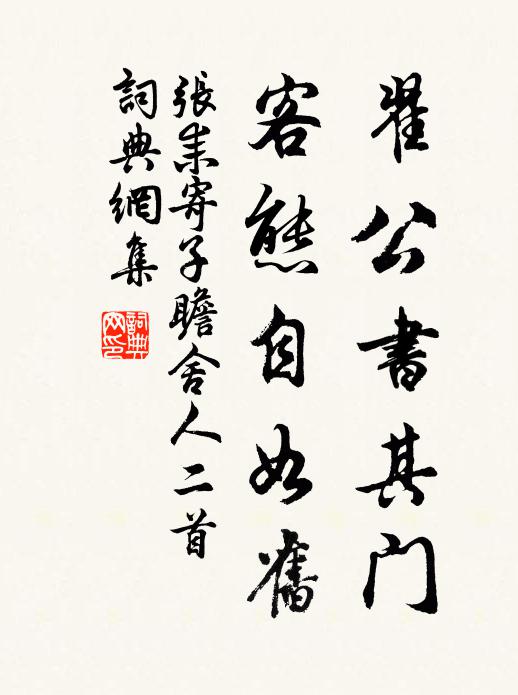 翟公書其門
客態自如舊
張耒寄子瞻舍人二首
詞典網集
詞典
网印